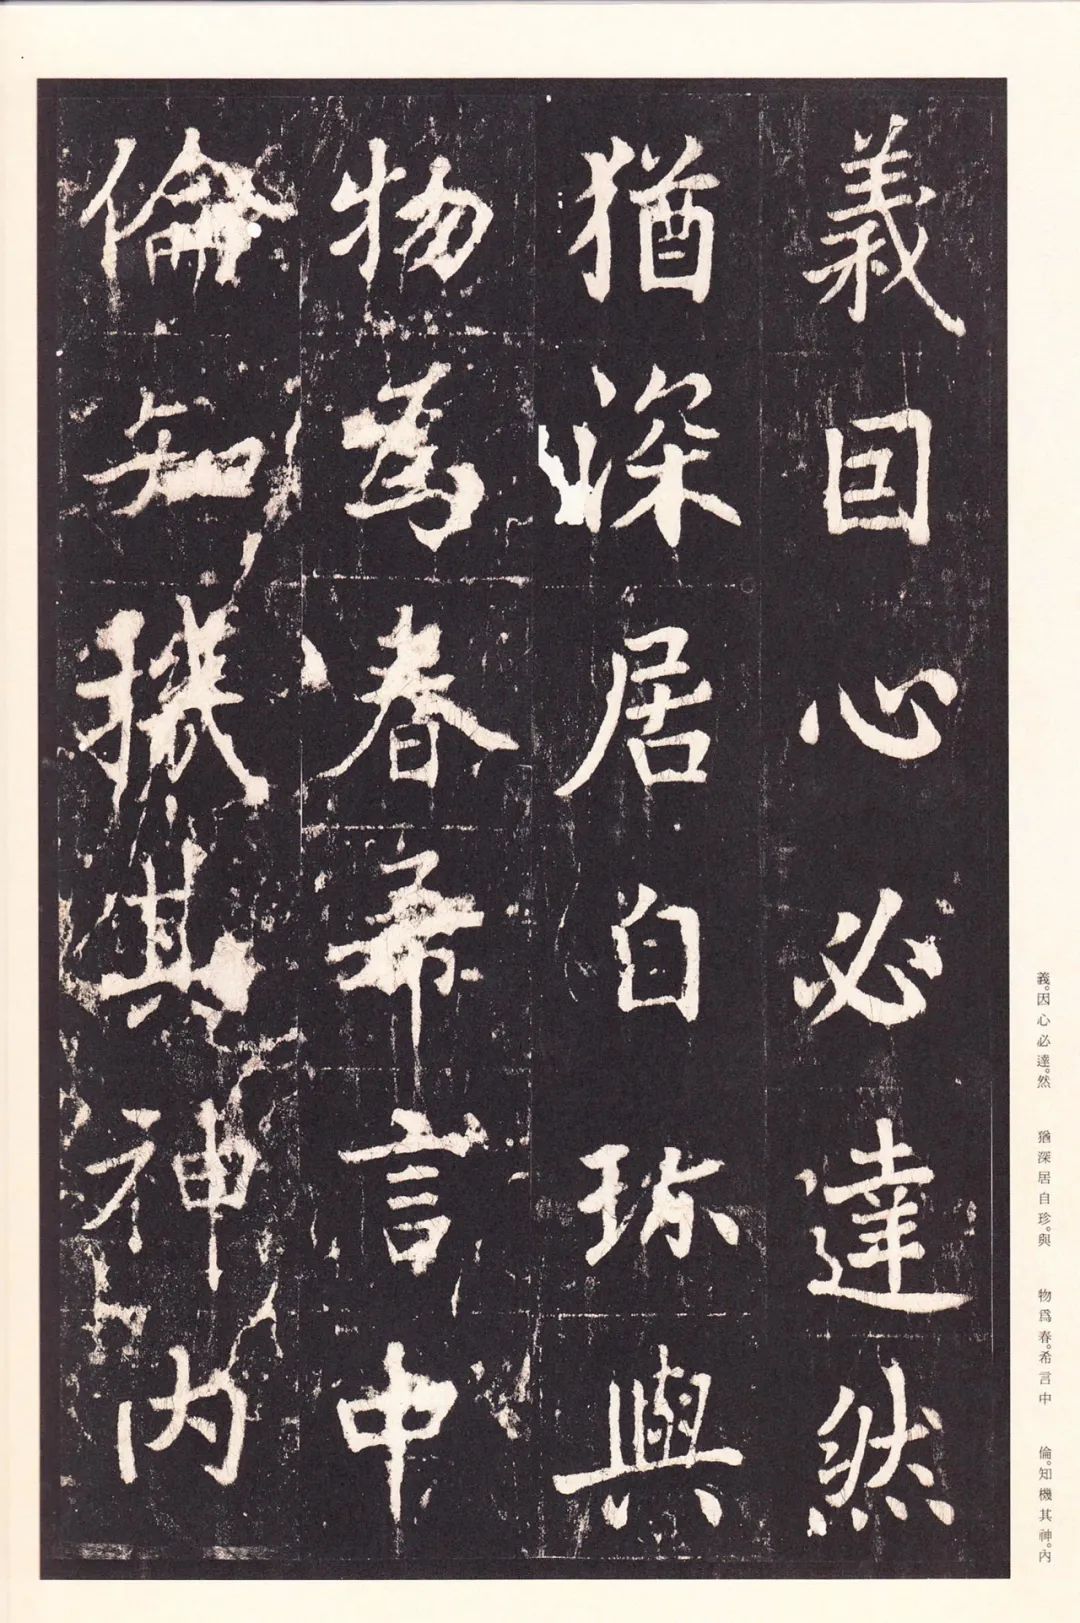 義因心必達然
猶深居自珎與
物為春希言中
倫知機其神内
義。因心必達。然　猶深居自珍。與　物爲春。希言中　倫。知機其神。內